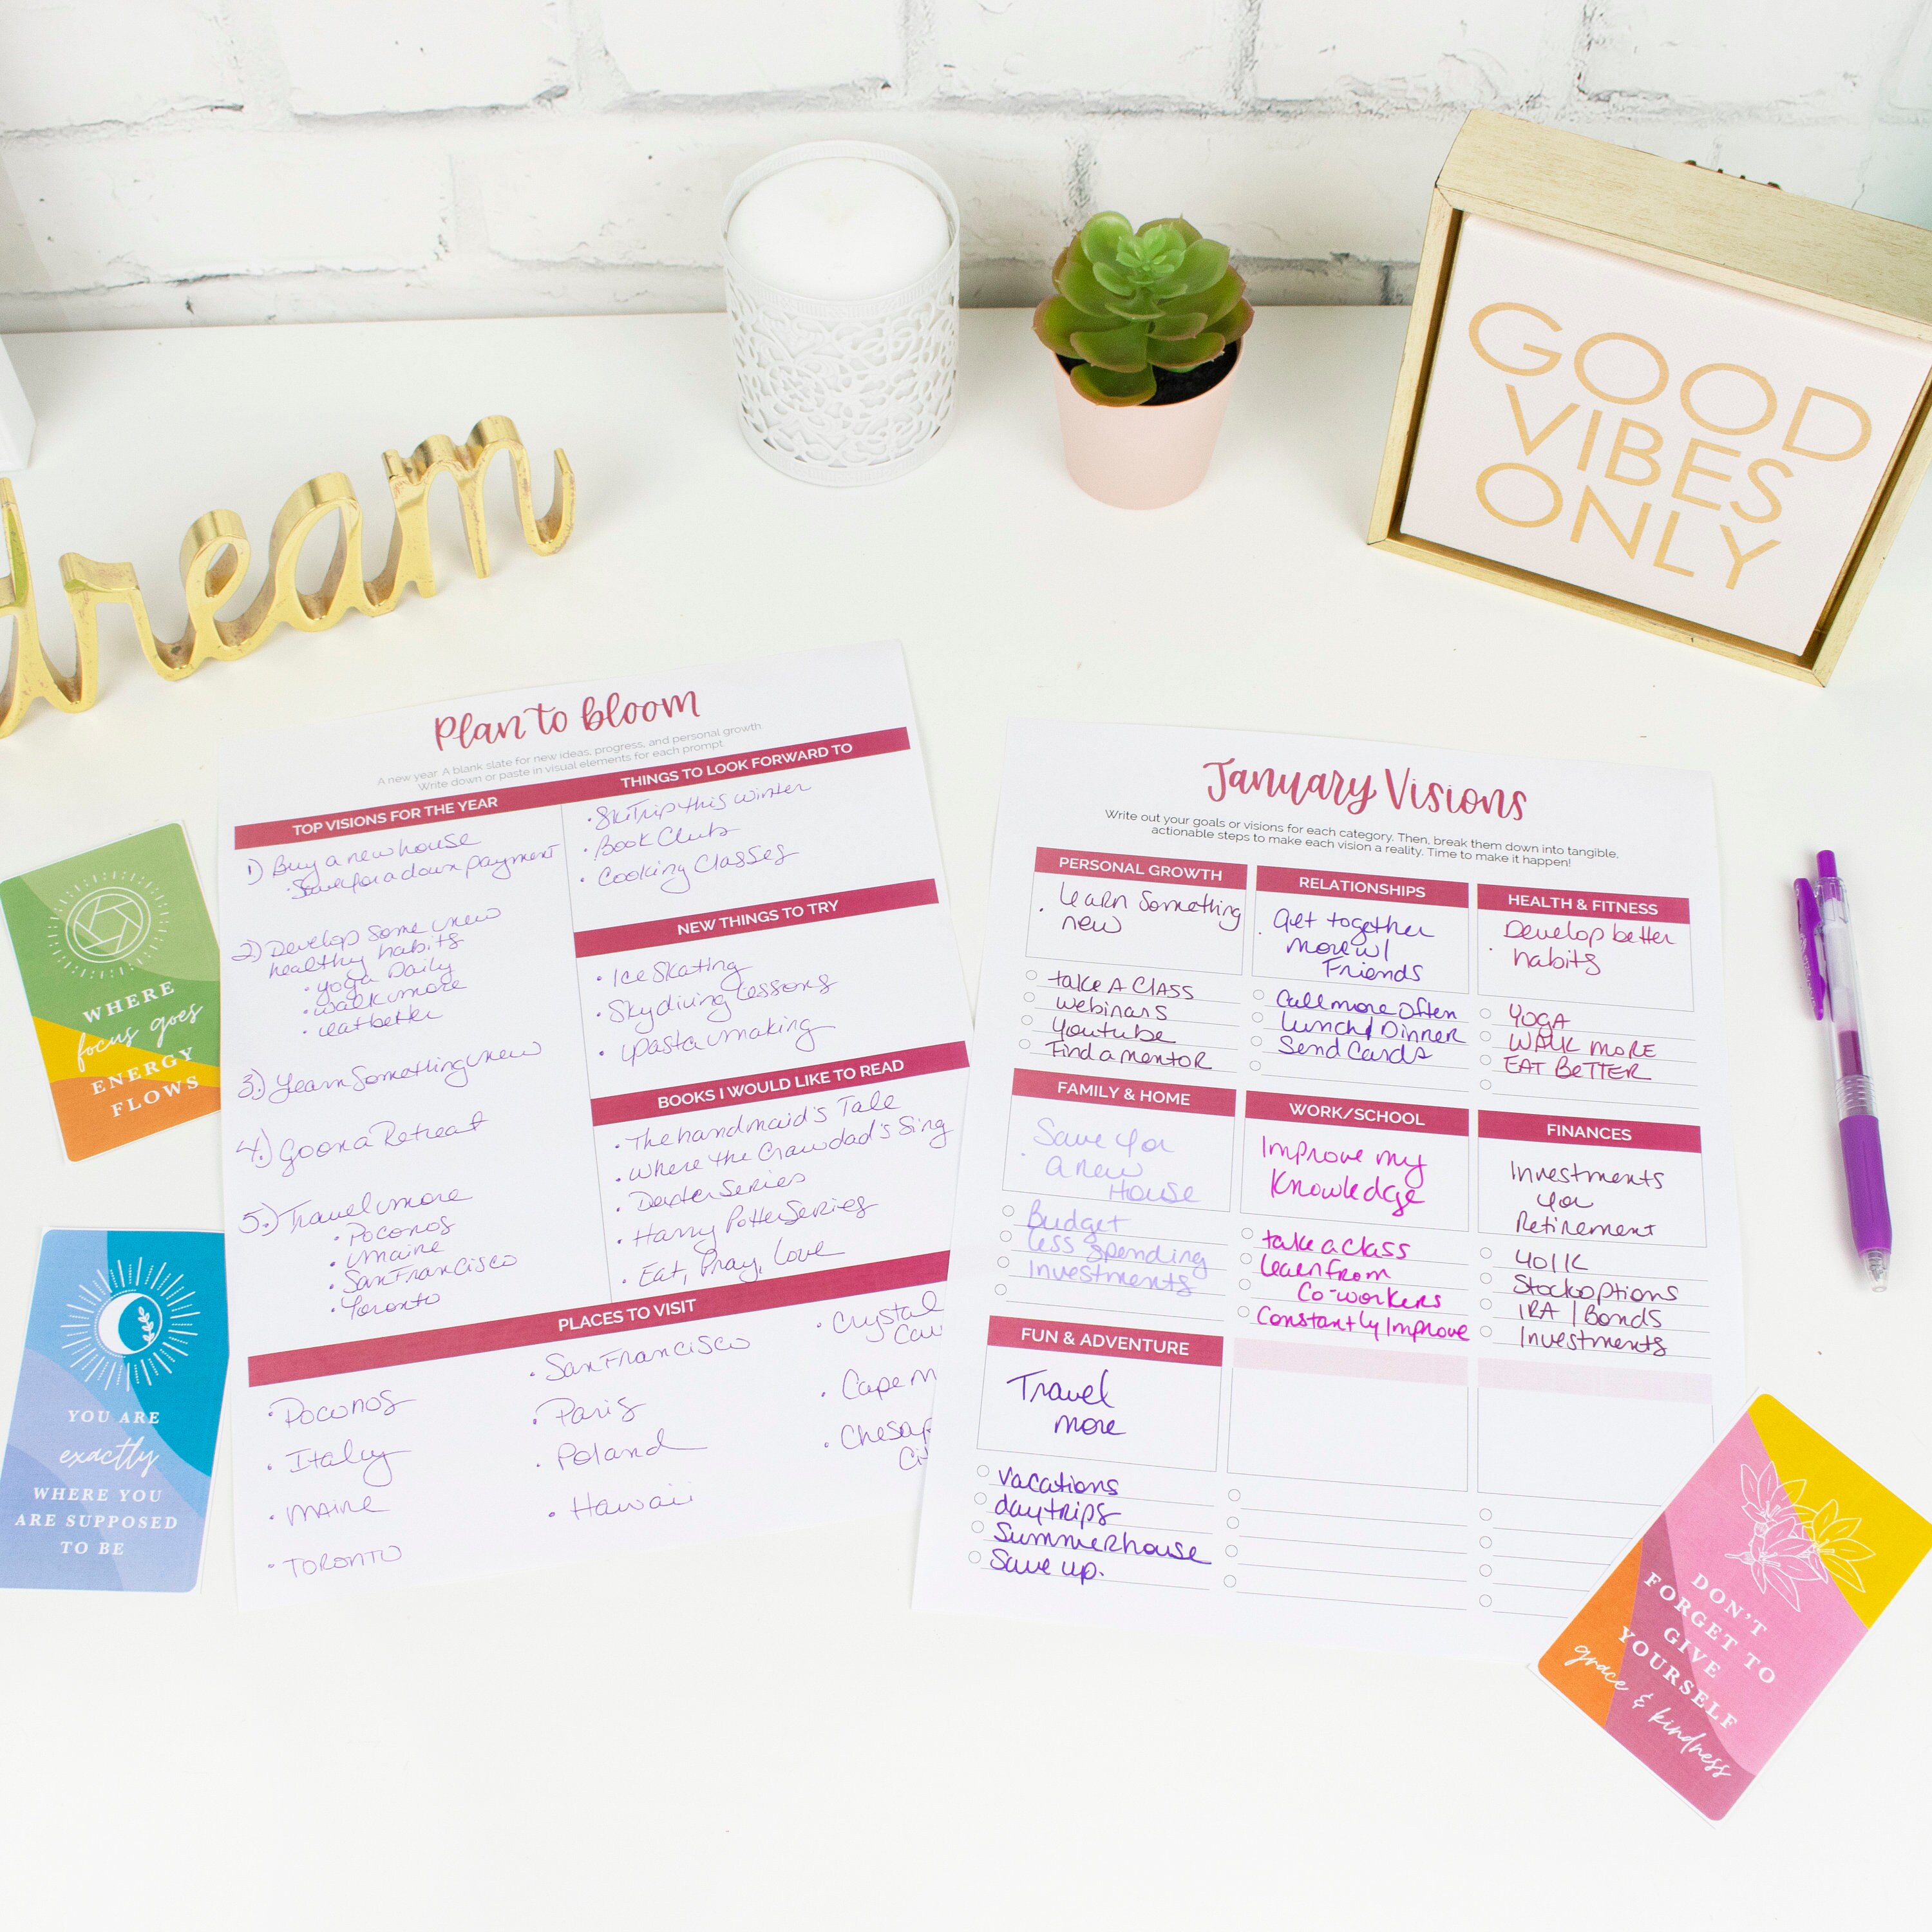 dream
GOOD
VIBES
ONLY
Plan to bloom
A new year. A blank slate for new ideas, progress, and personal growth.
Write down or paste in visual elements for each prompt.
TOP VISIONS FOR THE YEAR
1) Buy a new house
• Save for a down payment
2) Develop some new
healthy habits
• yoga Daily
• walk more
• eat better
3.) Learn Something new
4.) Go on a Retreat
5.) Travel more
• Poconos
• Maine
• San Francisco
• Toronto
THINGS TO LOOK FORWARD TO
• Ski Trip this winter
• Book Club
• Cooking Classes
NEW THINGS TO TRY
• Ice Skating
• Skydiving Lessons
• Pasta making
BOOKS I WOULD LIKE TO READ
• The handmaid's Tale
• where the Crawdad's Sing
• Dexter Series
• Harry Potter Series
• Eat, Pray, Love
PLACES TO VISIT
• Poconos
• Italy
• MAINE
• TORONTO
• San Francisco
• Paris
• Poland
• Hawaii
• Crystal
• Cape
January Visions
Write out your goals or visions for each category. Then, break them down into tangible,
actionable steps to make each vision a reality. Time to make it happen!
PERSONAL GROWTH
• Learn Something
new
take A CLASS
webinars
Youtube
Find a mentor
RELATIONSHIPS
• Get together
more w/
Friends
Call more Often
Lunch/Dinner
Send Cards
HEALTH & FITNESS
• Develop better
habits
YOGA
WALK MORE
EAT BETTER
FAMILY & HOME
• Save for
a new
House
Budget
less spending
Investments
WORK/SCHOOL
Improve my
Knowledge
take a class
Learn from
Co-workers
Constantly Improve
FINANCES
Investments
for
Retirement
401K
Stock options
IRA | Bonds
Investments
FUN & ADVENTURE
Travel
more
Vacations
day trips
Summer house
Save up.
WHERE
focus goes
ENERGY
FLOWS
YOU ARE
exactly
WHERE YOU
ARE SUPPOSED
TO BE
DON'T
FORGET TO
GIVE
YOURSELF
grace & kindness